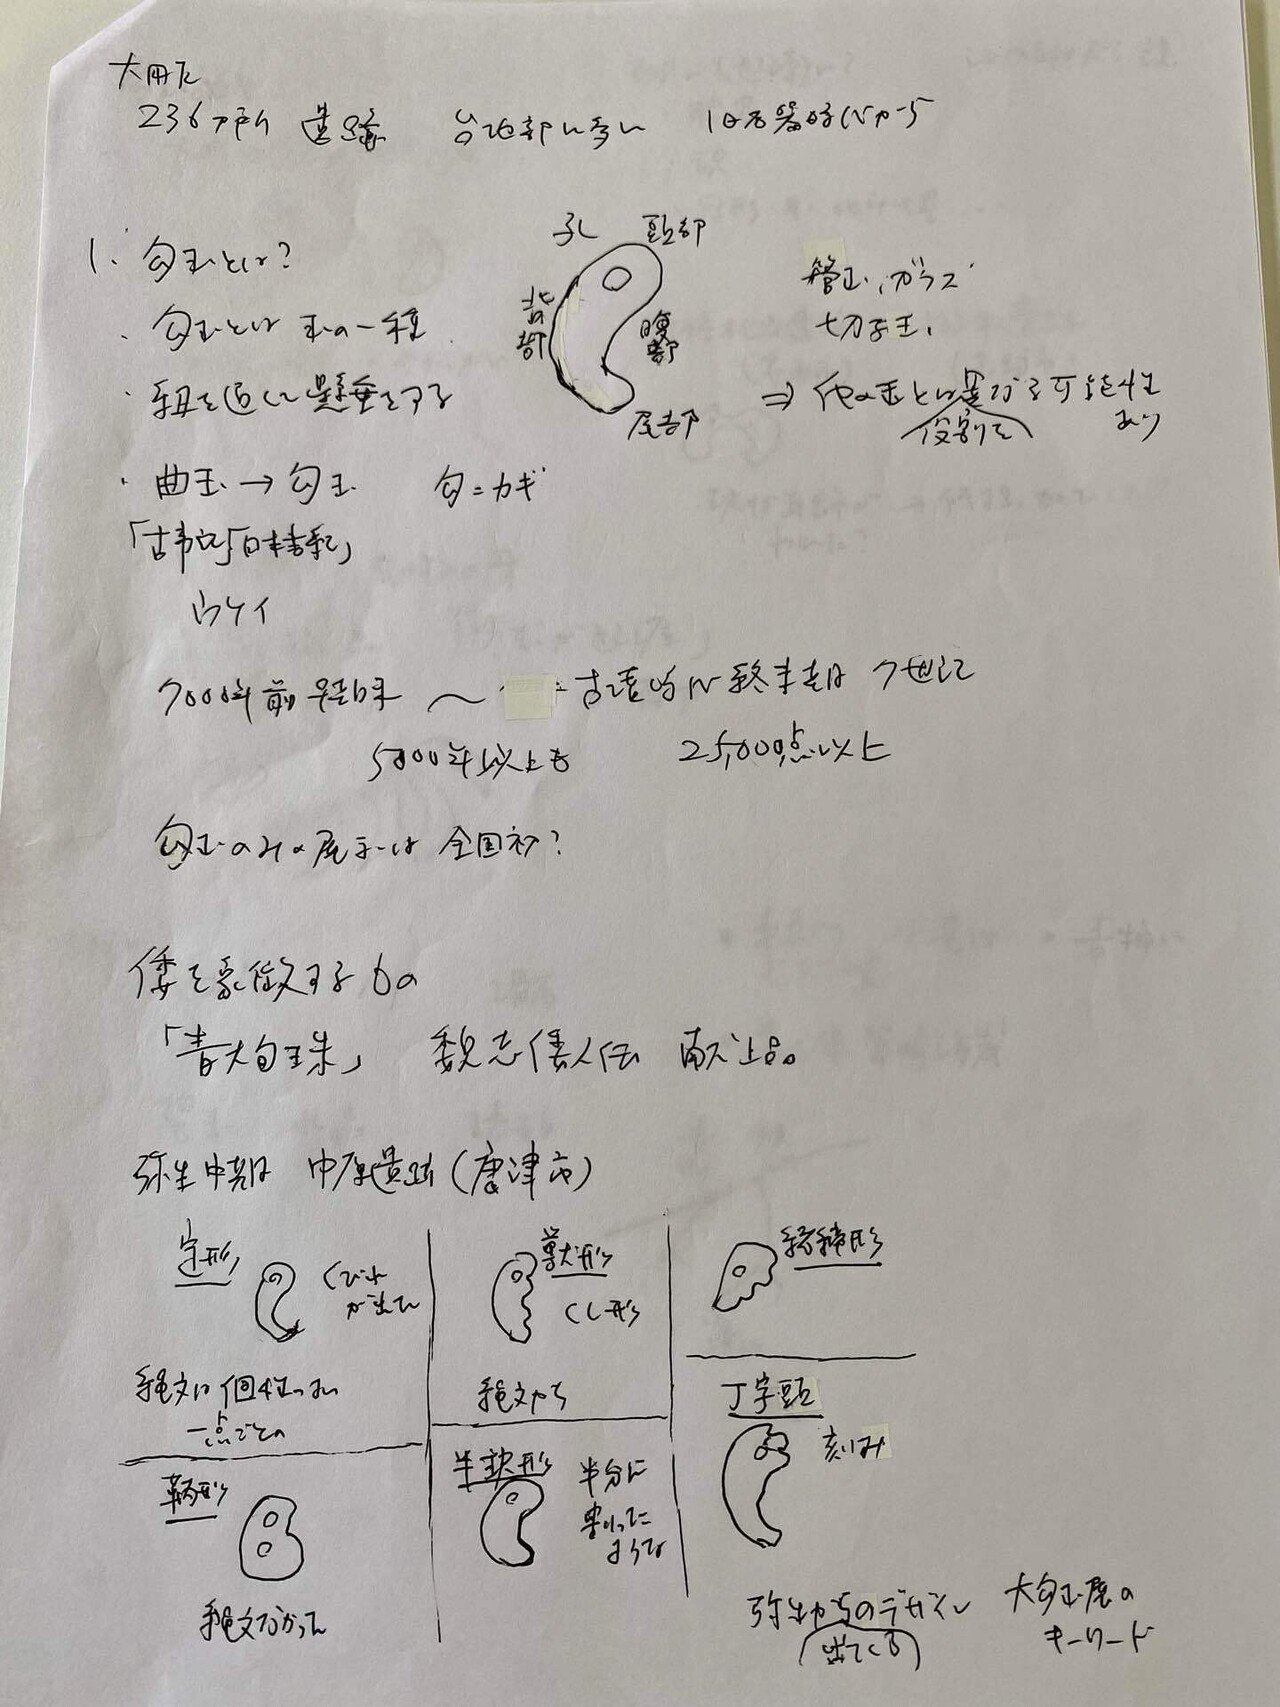 大田区
236ヶ所 遺跡 台地部に多い 旧石器時代から
1. 勾玉とは?
・勾玉とは 玉の一種
・紐を通して懸垂をする
・曲玉→勾玉 勾=カギ
「古事記」「日本書紀」
ウケイ
孔 頭部
背部 腹部
尾部
管玉、ガラス
切子玉、
⇒他の玉とは異なる可能性あり
役割を
7000年前 早期末 〜 古墳時代終末期 7世紀
5000年以上も 25,000点以上
勾玉のみの展示は 全国初?
倭を象徴するもの
「青大勾珠」 魏志倭人伝 献上品。
弥生中期 中原遺跡(唐津市)
定形 くびれが出て
縄文は個性つよい
一点ごとの
獣形 くし形
縄文から
緒締形
鞆形
縄文だかって
半玦形 半分に
割ったような
丁字頭
刻み
弥生からのデザイン
出てくる
大勾玉展の
キーワード